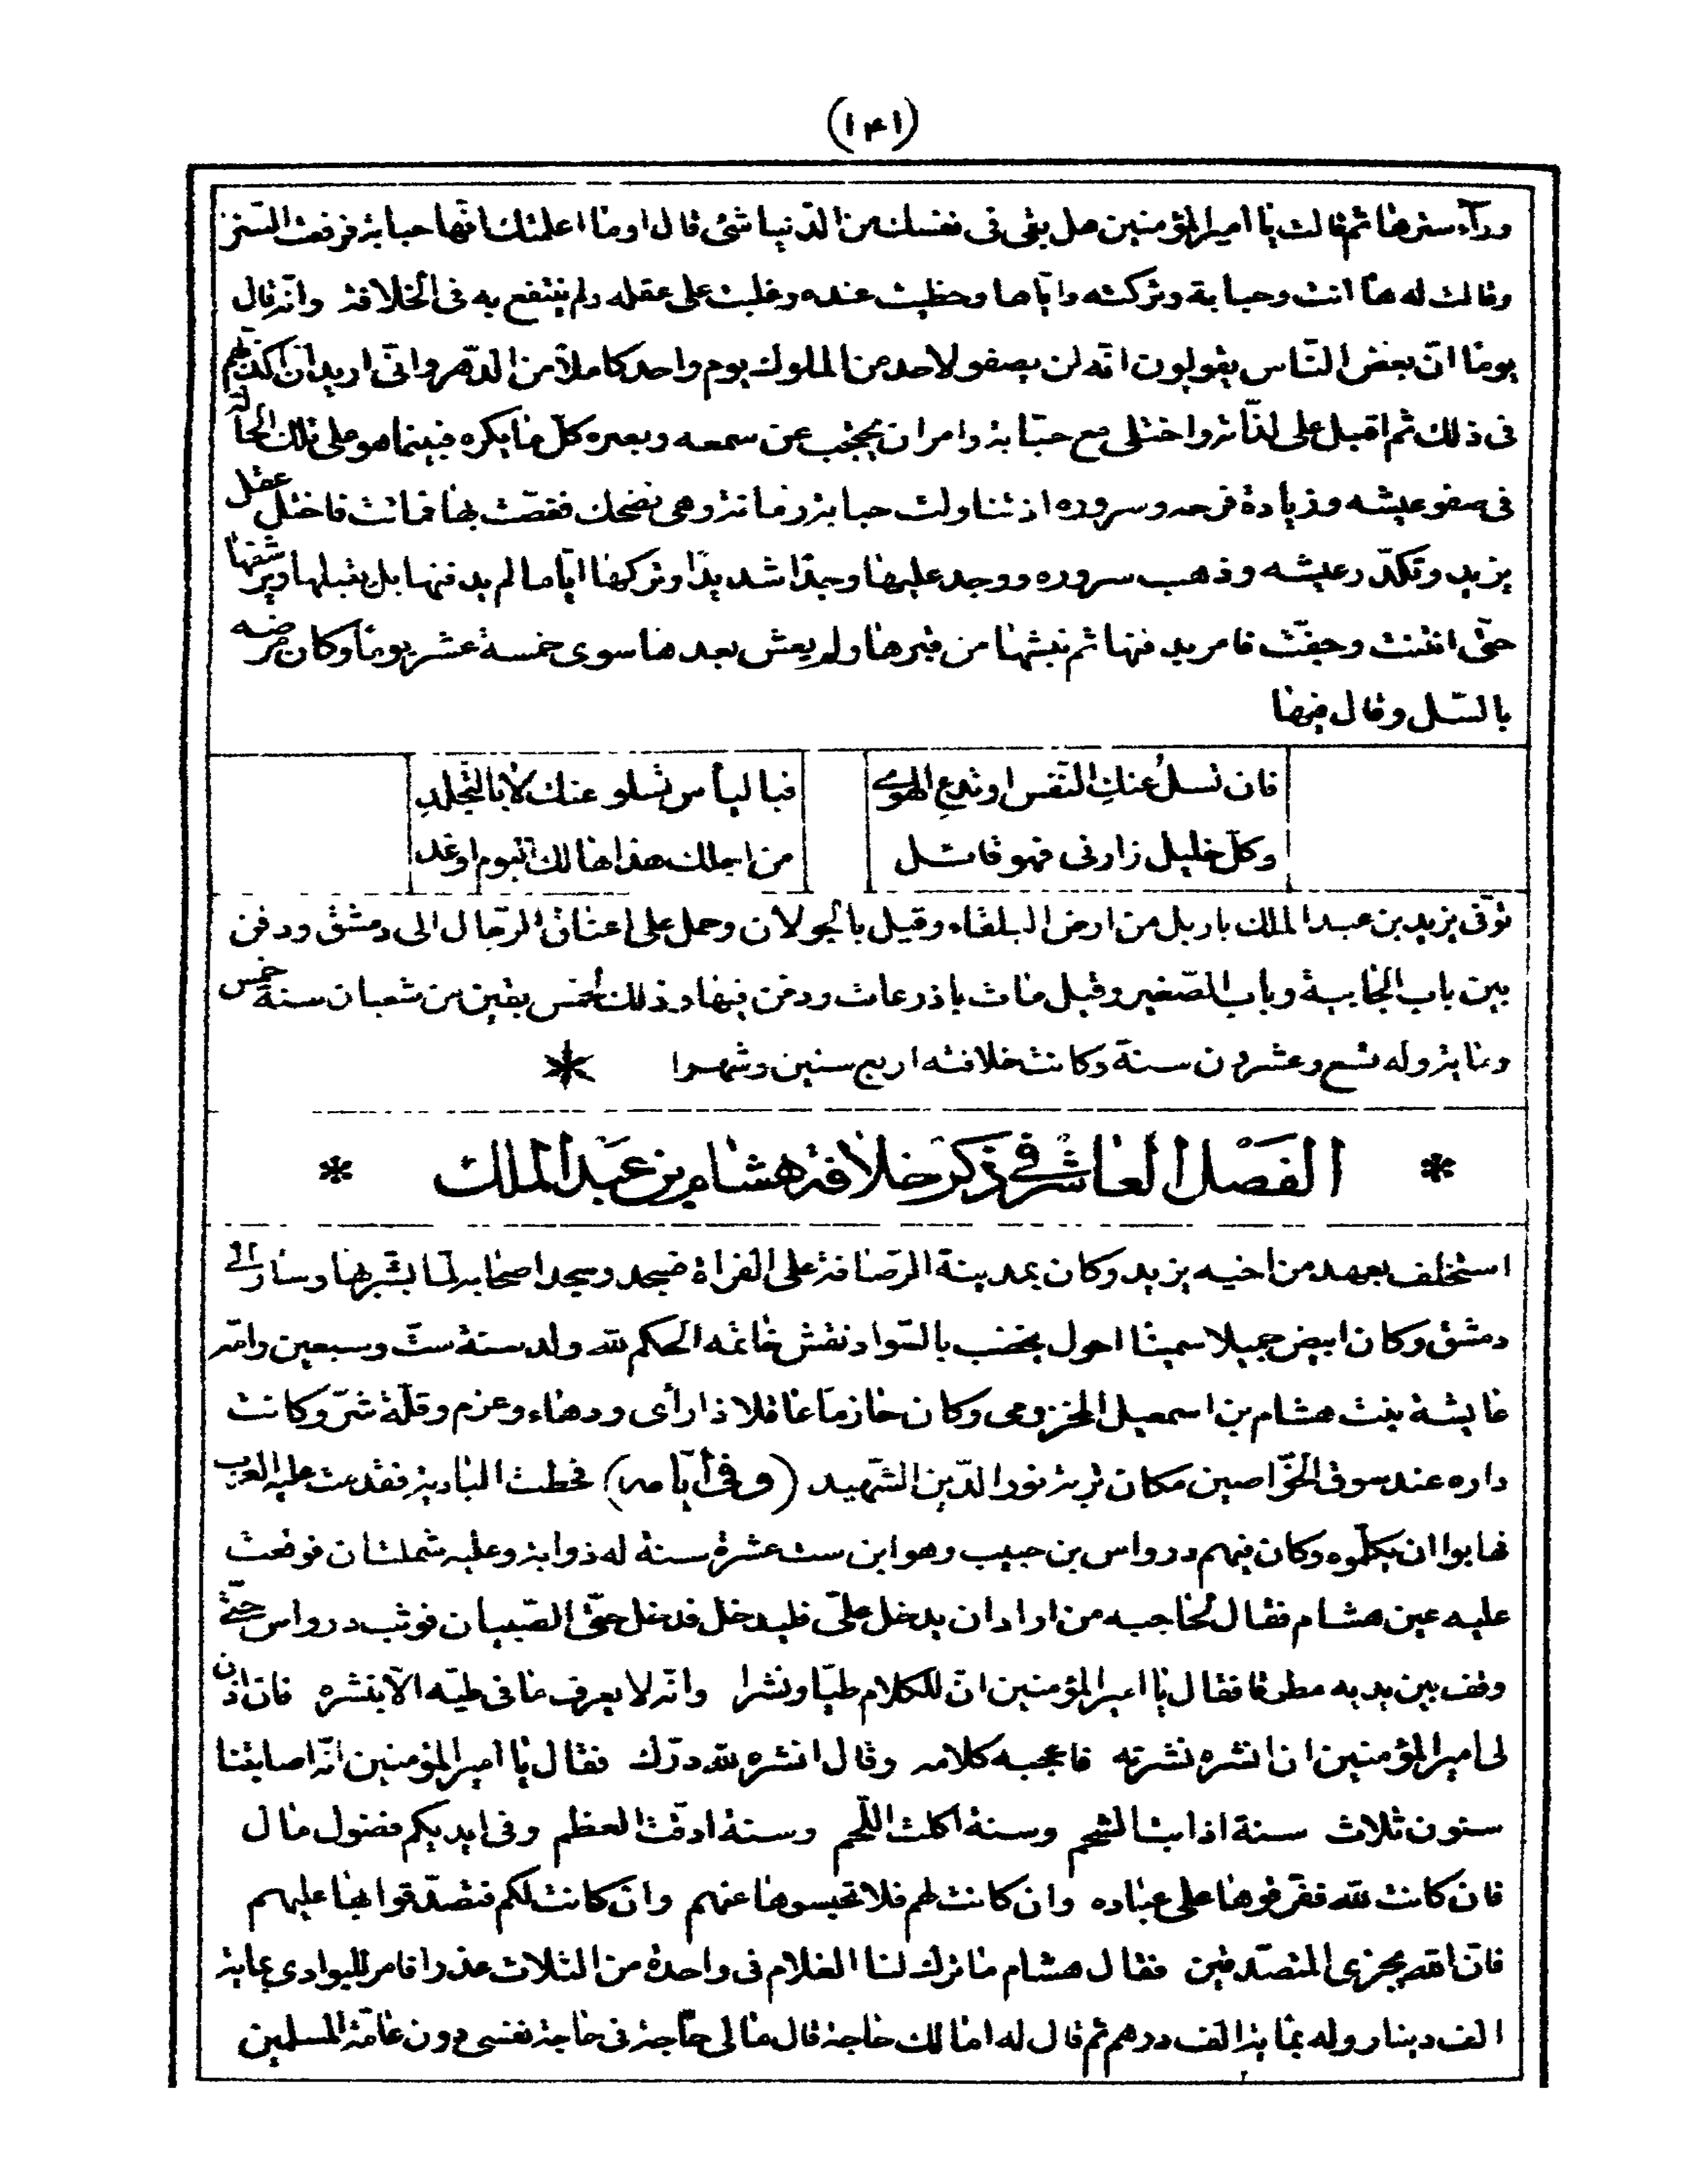 (١٤١)
ورآء سترها ثم قالت يا امير المؤمنين هل بقى فى نفسك من الدّنيا شئ قال اوما اعلمتك انّها حبابة فرفعت السّتر
وقالت له ها انت وحبابة وتركته وايّاها وحظيت عنده وغلبت على عقله ولم ينتفع به فى الخلافة وانّه قال
يومًا انّ بعض النّاس يقولون انّه لن يصفو لاحد من الملوك يوم واحد كاملًا من الدّهر وانّى اريد ان اكذّبهم
فى ذلك ثم اقبل على لذّاته واختلى مع حبّابة وامر ان يحجب عن سمعه وبصره كلّ ما يكره فبينما هو على تلك الحالة
فى صفو عيشه وزيادة فرحه وسروره اذ تناولت حبابة رمانة وهى تضحك فغصّت بها فماتت فاختل عقل
يزيد وتكدّر عيشه وذهب سروره ووجد عليها وجدًا شديدًا وتركها ايّاما لم يدفنها بل يقبلها ويرشفها
حتّى انتنت وجيفت فامر بدفنها ثم نبشها من قبرها ولم يعش بعدها سوى خمسة عشر يومًا وكان مرضه
بالسّل وقال فيها
فان تسلُ عنكِ النّفس او تدعِ الهوى فبالياس تسلو عنك لا بالتّجلدِ
وكلّ خليل زارنى فهو قائل من اجلك هذا هالك اليوم او غد
توّفى يزيد بن عبد الملك باربل من ارض البلقاء وقيل بالجولان وحمل على اعناق الرّجال الى دمشق ودفن
بين باب الجابية وباب الصّغير وقيل مات باذرعات ودفن فيها وذلك لخمس بقين من شعبان سنة خمس
ومايه وله تسع وعشرون سنة وكانت خلافته اربع سنين وشهرا *
* الفصل العاشر فى ذكر خلافة هشام بن عبد الملك *
استخلف بعهد من اخيه يزيد وكان بمدينة الرّصافة على الفراة فسجد وسجد اصحابه لمّا بشّر بها وسار الى
دمشق وكان ابيض جميلا سمينا احول يخضب بالسّواد نقش خاتمه الحكم لله ولد سنة ستّ وسبعين وامّه
عايشة بنت هشام بن اسمعيل المخزومى وكان حازمًا عاقلا ذا رأى ودهاء وعزم وقلّة شرّ وكانت
داره عند سوق الخوّاصين مكان تربة نور الدّين الشّهيد (وفى أيّامه) قحطت البادية فقدمت عليه العرب
فهابوا ان يكلّموه وكان فيهم درواس بن حبيب وهو ابن ست عشرة سنة له ذوابة وعليه شملتان فوقعت
عليه عين هشام فقال لحاجبه من اراد ان يدخل علىّ فليدخل فدخل حتّى الصّبيان فوثب درواس حتّى
وقف بين يديه مطرقا فقال يا امير المؤمنين انّ للكلام طيّا ونشرا وانّه لا يعرف ما فى طيّه الّا بنشره فان اذن
لى امير المؤمنين ان انشره نشرته فاعجبه كلامه وقال انشره لله درّك فقال يا امير المؤمنين انّه اصابتنا
سنون ثلاث سنة اذابت الشّحم وسنة اكلت اللّحم وسنة ادقّت العظم وفى ايديكم فضول مال
فان كانت لله ففرقوها على عباده وان كانت لهم فلا تحبسوها عنهم وان كانت لكم فتصدّقوا بها عليهم
فانّ الله يجزى المتصدّقين فقال هشام ما ترك لنا الغلام فى واحدة من الثلاث عذرا فامر للبوادى بماية
الف دينار وله بماية الف درهم ثم قال له اما لك حاجة قال ما لى حاجة فى خاصة نفسى دون عامّة المسلمين